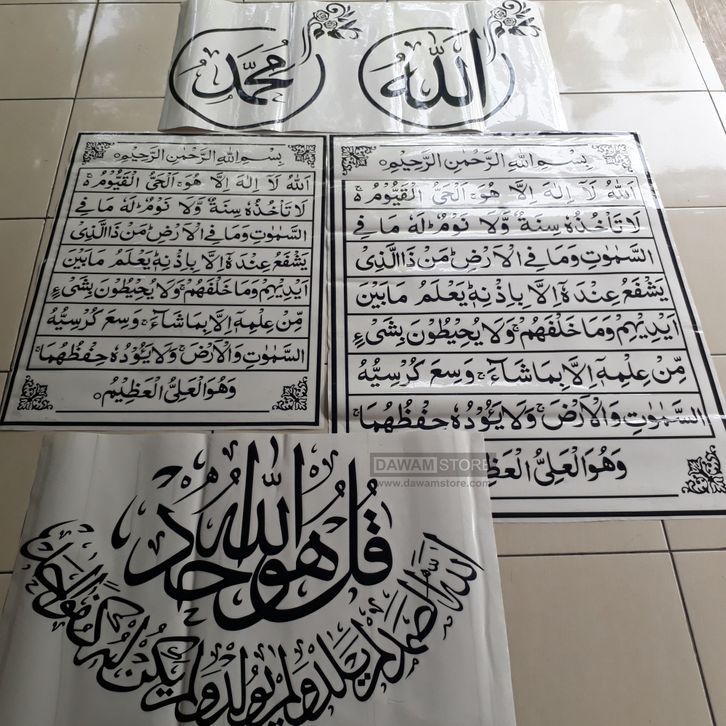 محمد
الله
بسم الله الرحمن الرحيم
الله لا اله الا هو الحي القيوم
لا تاخذه سنة ولا نوم له ما في
السموت وما في الارض من ذا الذي
يشفع عنده الا باذنه يعلم ما بين
ايديهم وما خلفهم ولا يحيطون بشيء
من علمه الا بما شاء وسع كرسيه
السموت والارض ولا يؤده حفظهما
وهو العلي العظيم
بسم الله الرحمن الرحيم
الله لا اله الا هو الحي القيوم
لا تاخذه سنة ولا نوم له ما في
السموت وما في الارض من ذا الذي
يشفع عنده الا باذنه يعلم ما بين
ايديهم وما خلفهم ولا يحيطون بشيء
من علمه الا بما شاء وسع كرسيه
السموت والارض ولا يؤده حفظهما
وهو العلي
DAWAM STORE
www.dawamstore.com
قل هو الله احد
الله الصمد لم يلد ولم يولد ولم يكن له كفوا احد